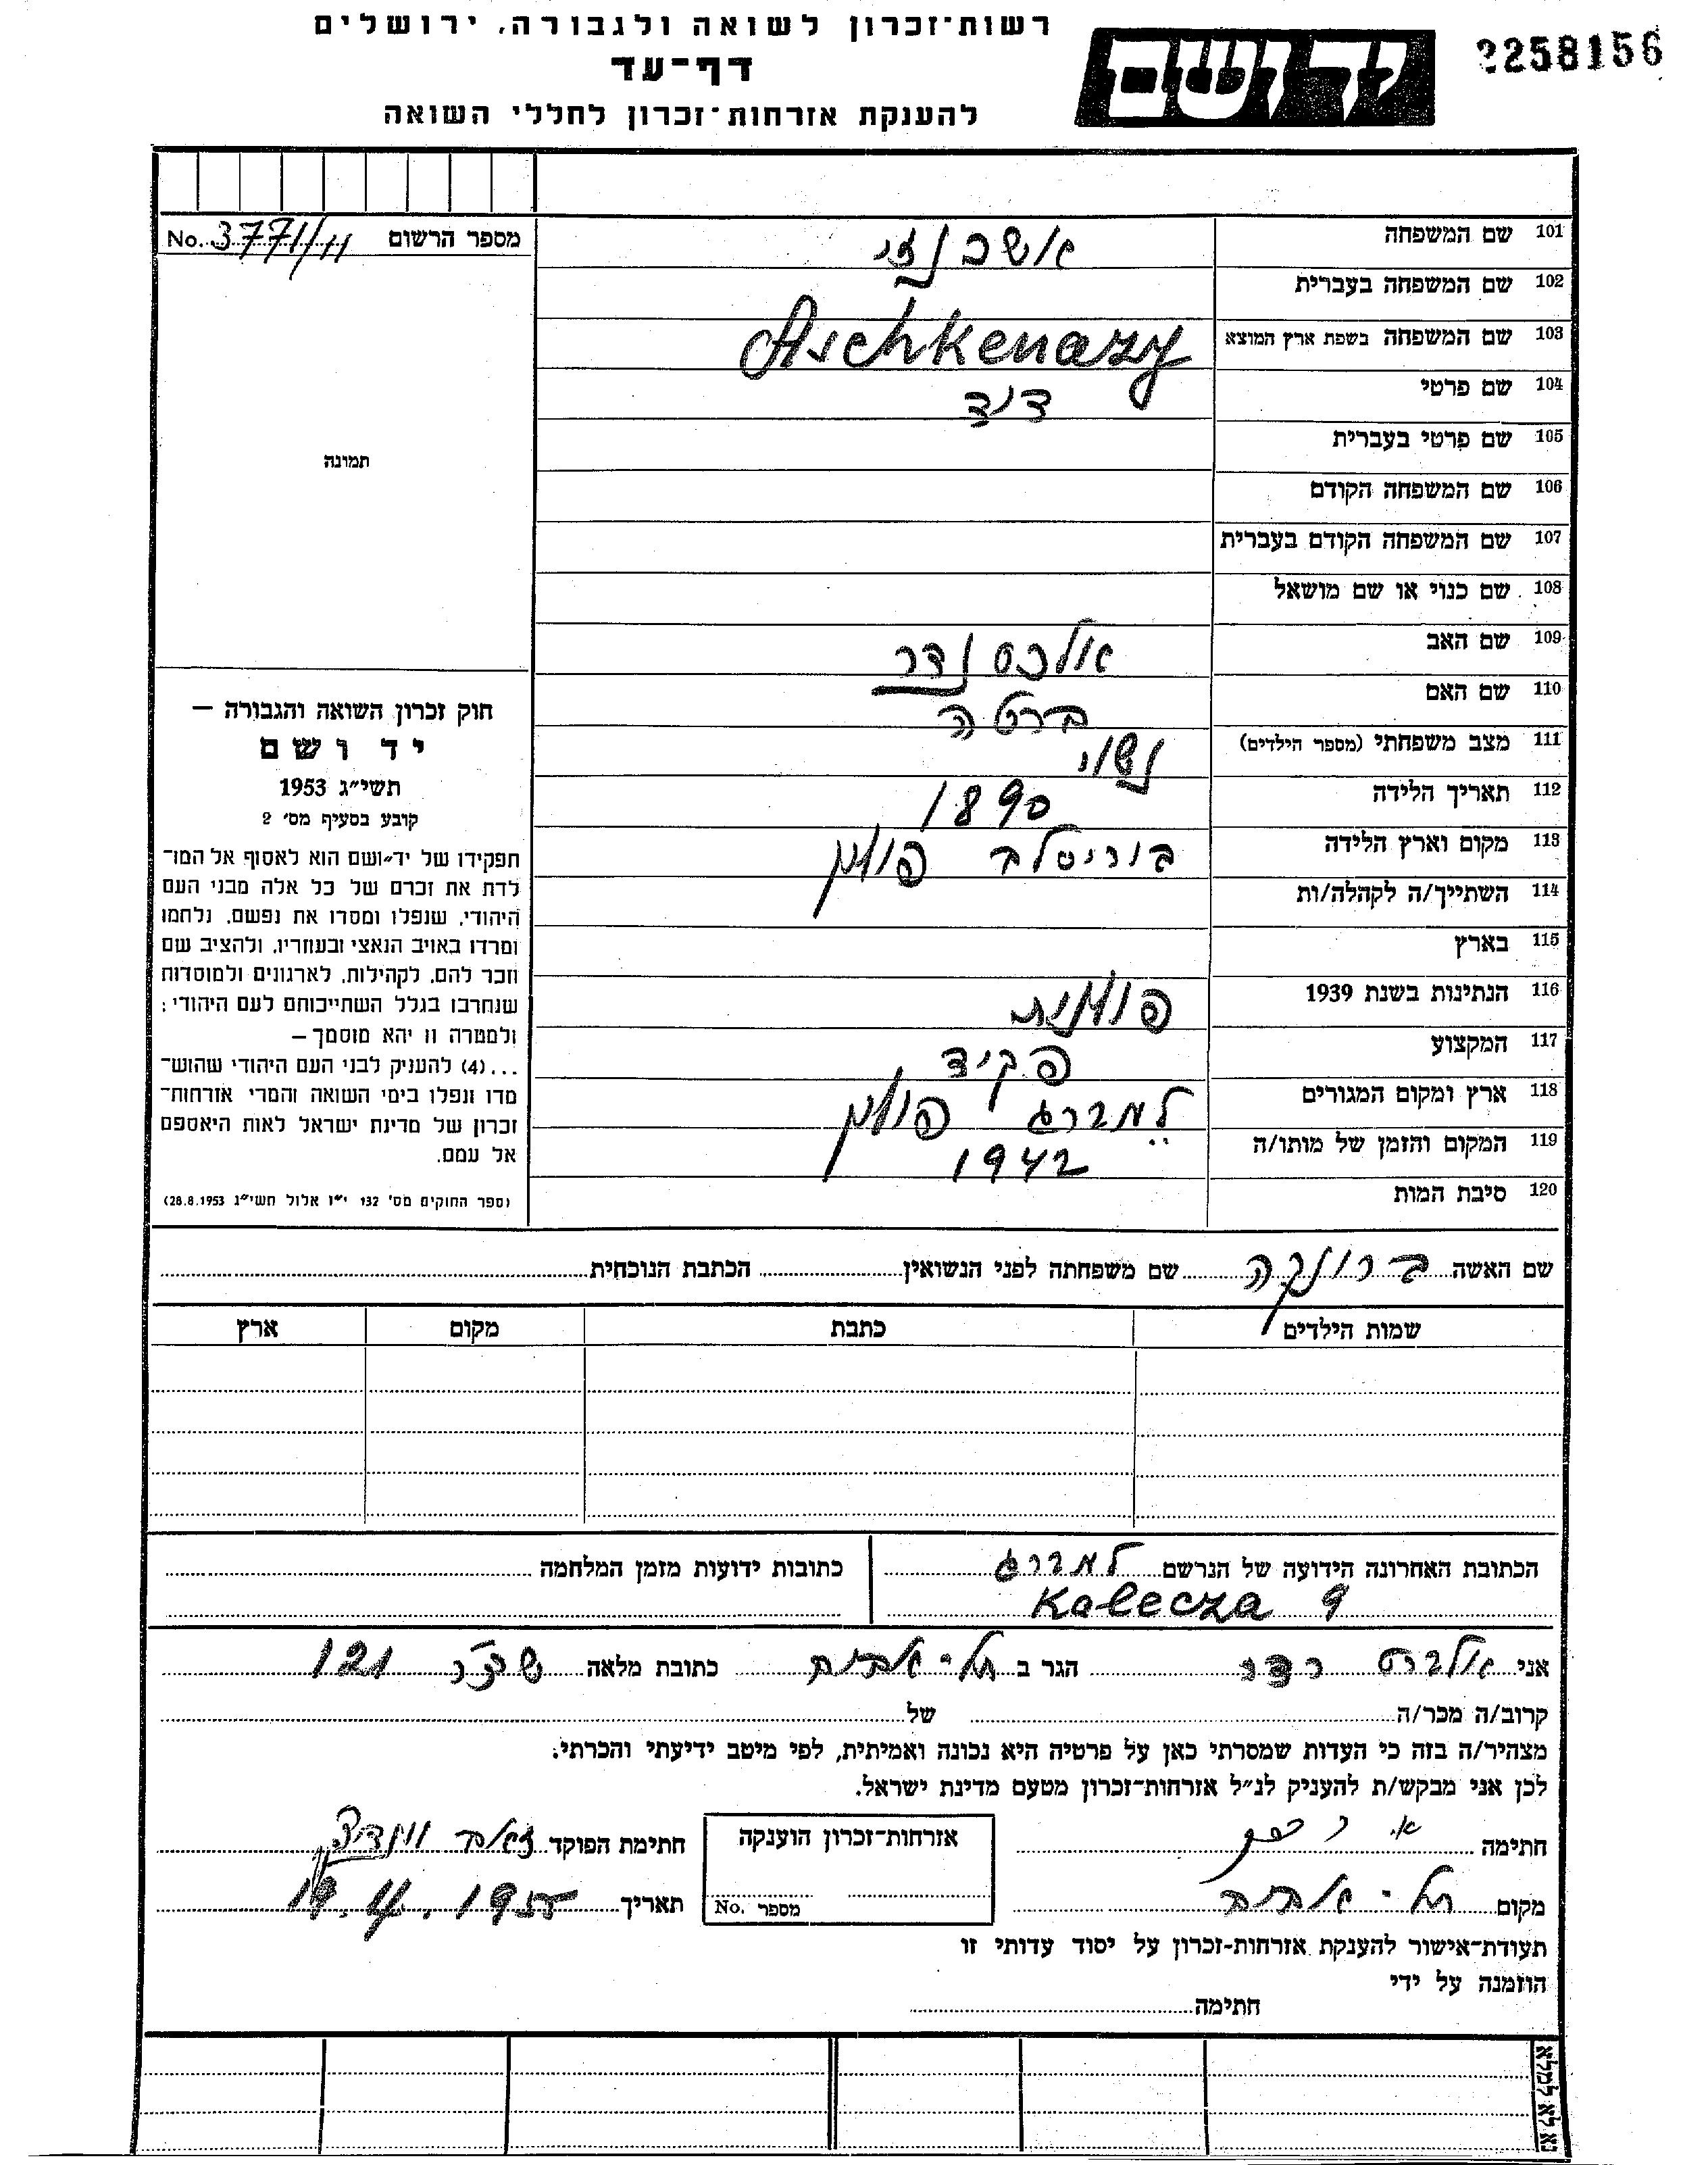 רשות־זכרון לשואה ולגבורה, ירושלים
דף־עד
להענקת אזרחות־זכרון לחללי השואה
יד ושם
2258156
מספר הרשום No. 3771/11
תמונה
101 שם המשפחה אשכנזי
102 שם המשפחה בעברית
103 שם המשפחה בשפת ארץ המוצא Aschkenazy
104 שם פרטי דוד
105 שם פרטי בעברית
106 שם המשפחה הקודם
107 שם המשפחה הקודם בעברית
108 שם כנוי או שם מושאל
109 שם האב אלכסנדר
110 שם האם ברטה
111 מצב משפחתי (מספר הילדים) נשוי
112 תאריך הלידה 1890
113 מקום וארץ הלידה בוריסלב פולין
114 השתייך/ה לקהלה/ות
115 בארץ
116 הנתינות בשנת 1939 פולנית
117 המקצוע פקיד
118 ארץ ומקום המגורים למברג פולין
119 המקום והזמן של מותו/ה 1942
120 סיבת המות
חוק זכרון השואה והגבורה —
יד ושם
תשי״ג 1953
קובע בסעיף מס' 2
תפקידו של יד־ושם הוא לאסוף אל המו־
לדת את זכרם של כל אלה מבני העם
היהודי, שנפלו ומסרו את נפשם, נלחמו
ומרדו באויב הנאצי ובעוזריו, ולהציב שם
וזכר להם, לקהילות, לארגונים ולמוסדות
שנחרבו בגלל השתייכותם לעם היהודי;
ולמטרה זו יהא מוסמך —
...(4) להעניק לבני העם היהודי שהוש־
מדו ונפלו בימי השואה והמרי אזרחות־
זכרון של מדינת ישראל לאות היאספם
אל עמם.
(ספר החוקים מס' 132 י״ז אלול תשי״ג 28.8.1953)
שם האשה ברונקה שם משפחתה לפני הנשואין הכתבת הנוכחית
שמות הילדים כתבת מקום ארץ
הכתובת האחרונה הידועה של הנרשם למברג כתובות ידועות מזמן המלחמה
Kalecza 9
אני אלברט הגר ב תל־אביב כתובת מלאה 121
קרוב/ה מכר/ה של
מצהיר/ה בזה כי העדות שמסרתי כאן על פרטיה היא נכונה ואמיתית, לפי מיטב ידיעתי והכרתי.
לכן אני מבקש/ת להעניק לנ״ל אזרחות־זכרון מטעם מדינת ישראל.
חתימה
אזרחות־זכרון הוענקה
מספר No.
חתימת הפוקד
מקום תל־אביב
תאריך
תעודת־אישור להענקת אזרחות־זכרון על יסוד עדותי זו
הוזמנה על ידי
חתימה
נא לא למלא